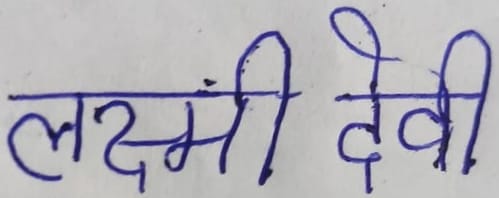 लक्ष्मीं देवी